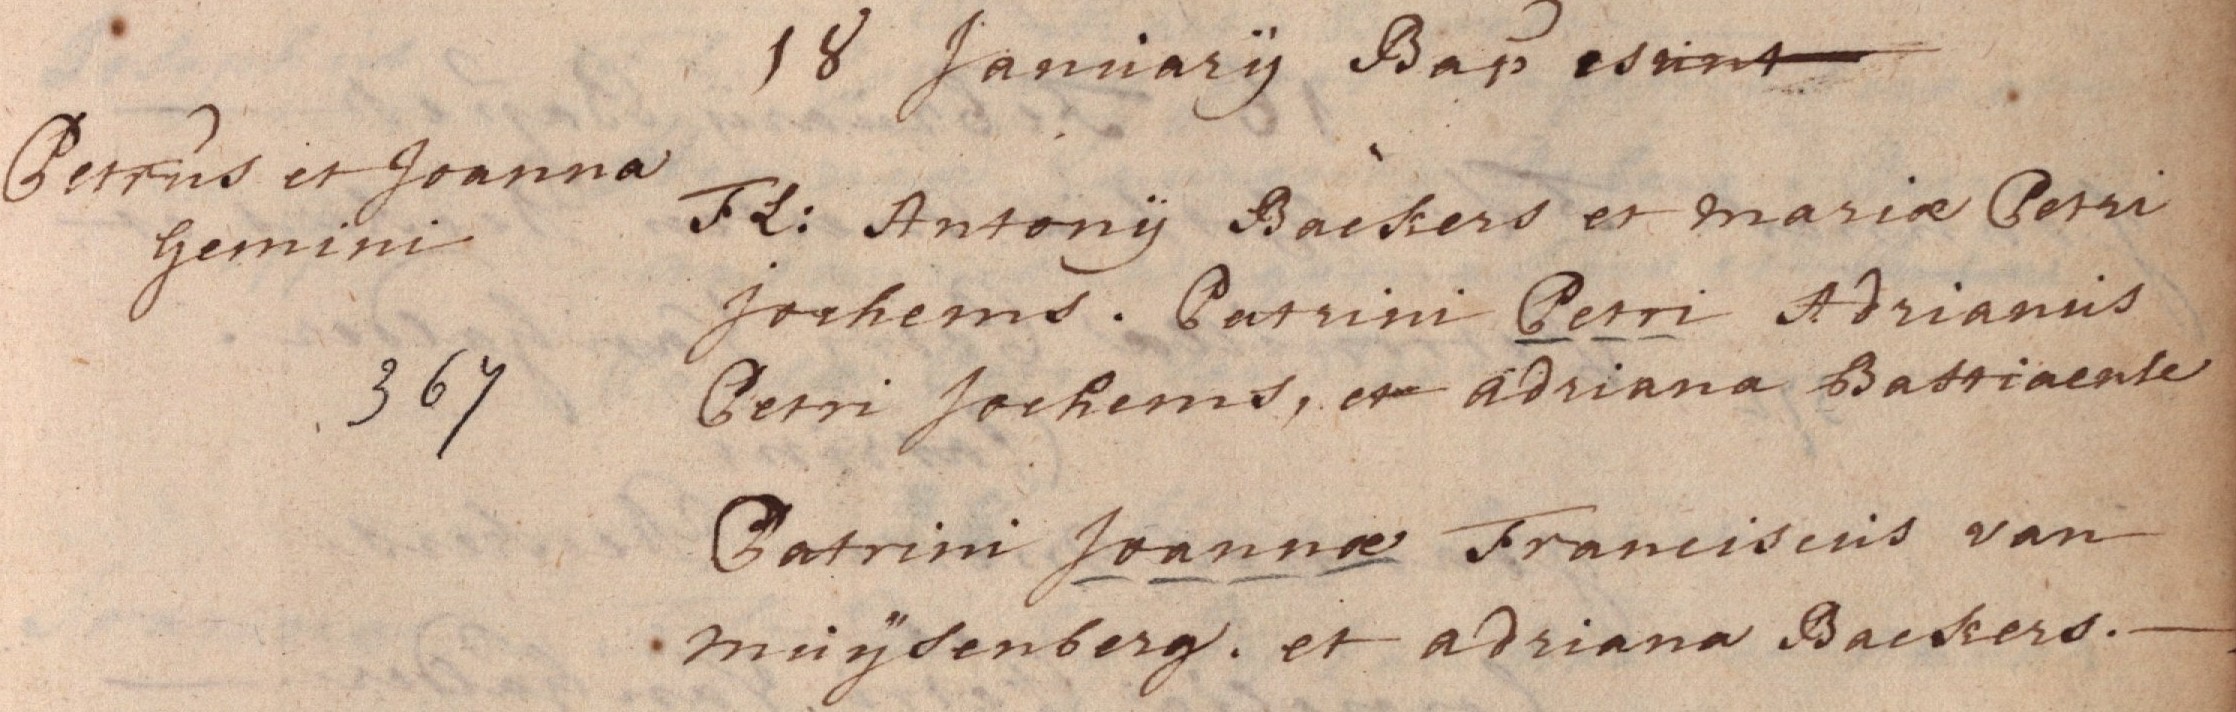 18 Januarÿ Bap esunt
Petrus et Joanna
Gemini
FL: Antonÿ Backers et Mariæ Petri
Jochems. Patrini Petri Adrianus
367
Petri Jochems, et Adriana Bastiaense
Patrini Joannæ Franciscus van
Muÿsenberg. et Adriana Backers.